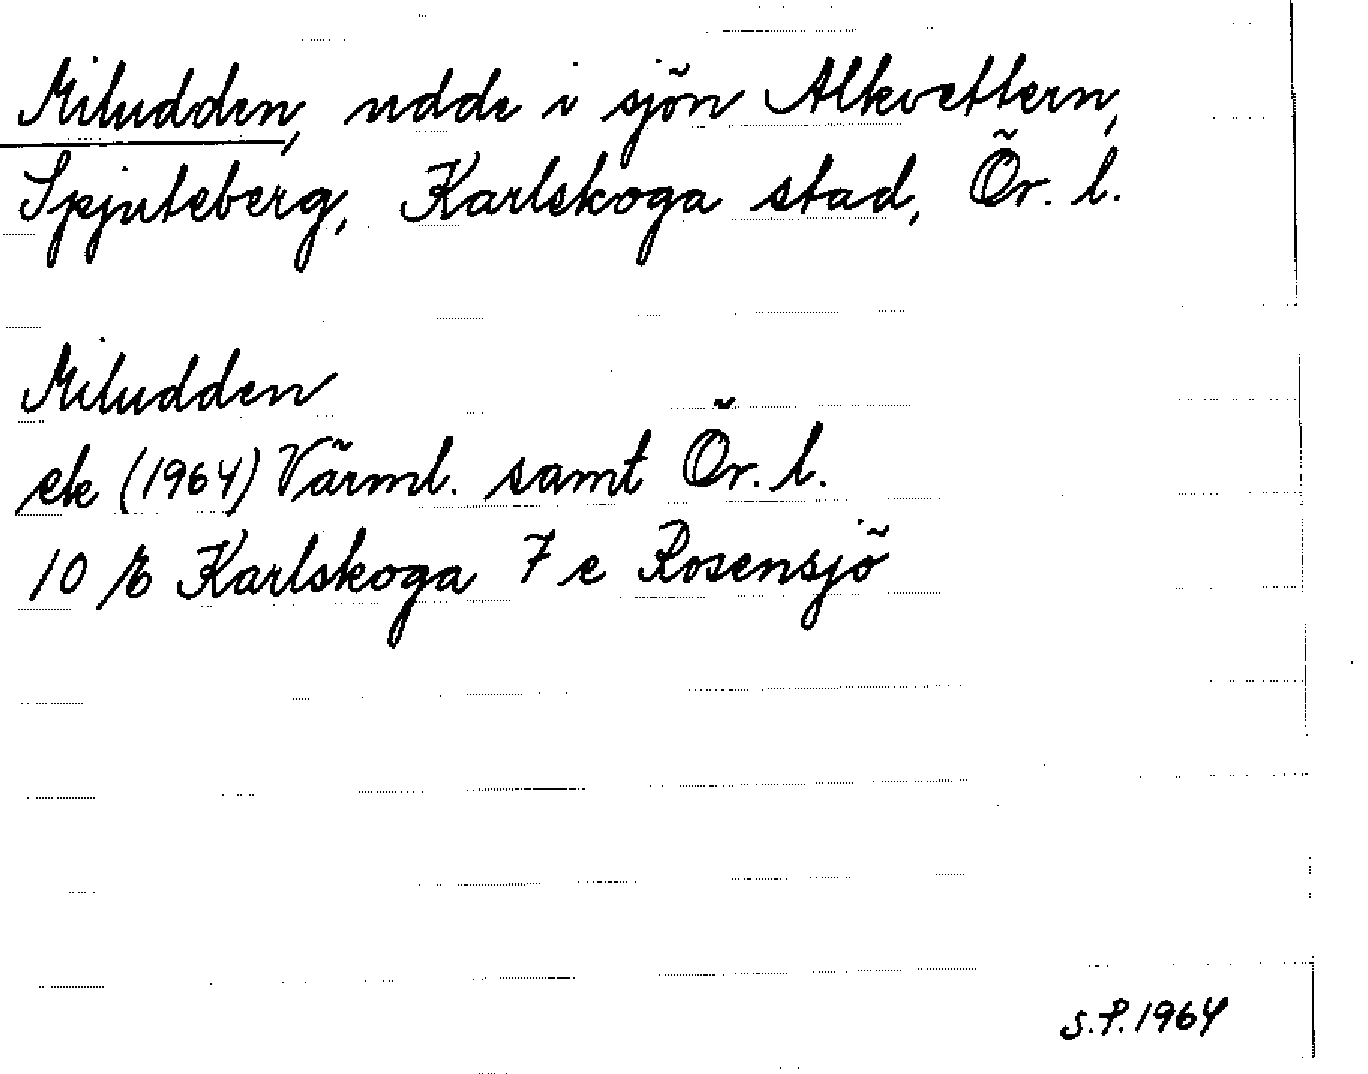 Miludden, udde i sjön Alkvettern,
Spjuteberg, Karlskoga stad, Ör. l.
Miludden
ek (1964) Värml. samt Ör. l.
10 E Karlskoga 7 e Rosensjö
S.P. 1964